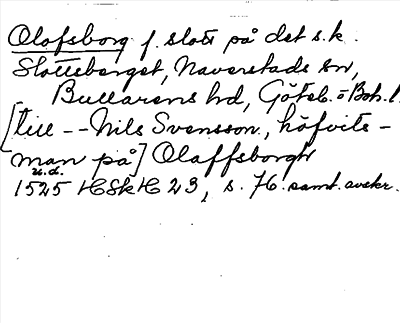 Olofsborg f. slott på det s.k.
Slottsberget, Naverstads sn,
Bullarens hd, Göteb. o Boh. l.
[till -- Nils Svensson, höfvits-
man på] Olaffsborgh
u.d.
1525 HSkH 23, s. 76. samt. avskr.